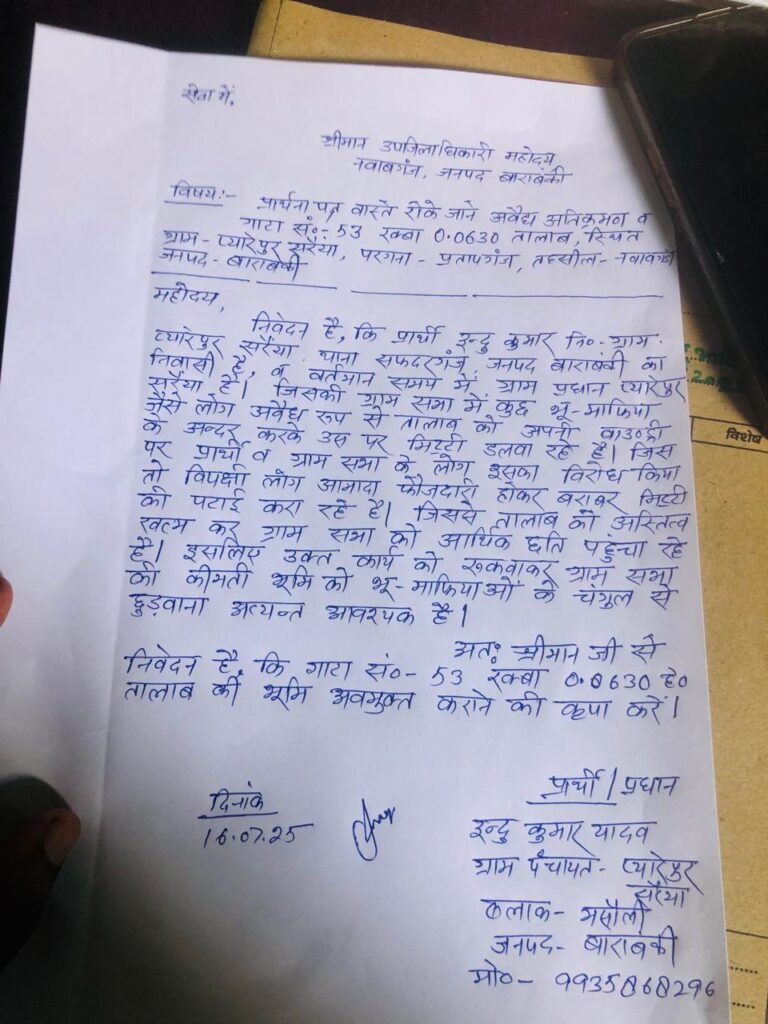 सेवा में,
श्रीमान उपजिलाधिकारी महोदय
नवाबगंज, जनपद बाराबंकी
विषय:- प्रार्थना पत्र वास्ते रोके जाने अवैध अतिक्रमण व
गाटा सं०:- 53 रक्बा 0.0630 तालाब, स्थित
ग्राम- प्यारेपुर सरैंया, परगना- प्रतापगंज, तहसील- नवाबगंज
जनपद- बाराबंकी
महोदय,
निवेदन है, कि प्रार्थी इन्दु कुमार नि०- ग्राम-
प्यारेपुर सरैंया थाना सफदरगंज, जनपद बाराबंकी का
निवासी है, व वर्तमान समय में ग्राम प्रधान प्यारेपुर
सरैंया है। जिसकी ग्राम सभा में कुछ भू-माफिया
जैसे लोग अवैध रूप से तालाब को अपनी बाउन्ड्री
के अन्दर करके उस पर मिट्टी डलवा रहे है। जिस
पर प्रार्थी व ग्राम सभा के लोग इसका विरोध किया
तो विपक्षी लोग आमादा फौजदारी होकर बराबर मिट्टी
की पटाई करा रहे है। जिससे तालाब को अस्तित्व
खत्म कर ग्राम सभा को आर्थिक छति पहुंचा रहे
है। इसलिए उक्त कार्य को रूकवाकर ग्राम सभा
की कीमती भूमि को भू-माफियाओं के चंगुल से
छुड़वाना अत्यन्त आवश्यक है।
अतः श्रीमान जी से
निवेदन है, कि गाटा सं०- 53 रक्बा 0.0630 हे०
तालाब की भूमि अवमुक्त कराने की कृपा करें।
दिनांक
16.07.25
प्रार्थी / प्रधान
इन्दु कुमार यादव
ग्राम पंचायत- प्यारेपुर
सरैंया
ब्लाक- मसौली
जनपद- बाराबंकी
मो०- 9935868296
विशेष